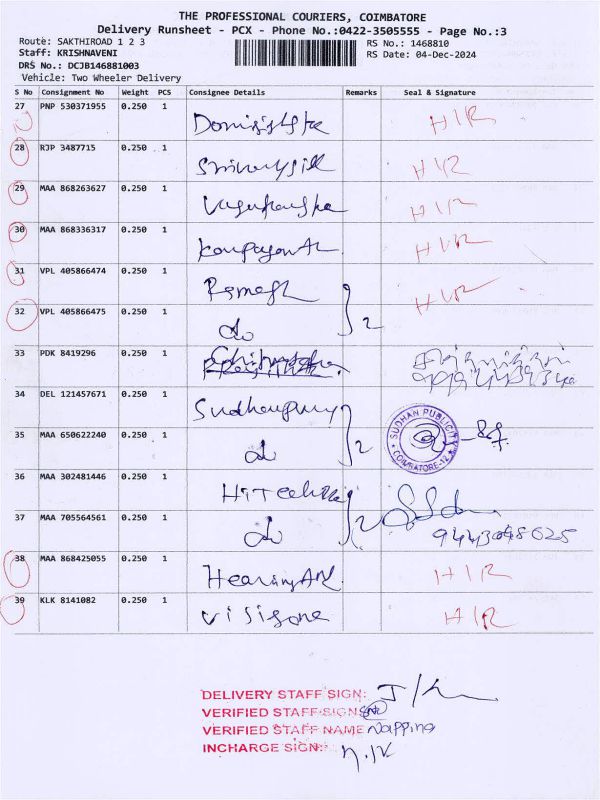 THE PROFESSIONAL COURIERS, COIMBATORE
Delivery Runsheet - PCX - Phone No.:0422-3505555 - Page No.:3
Route: SAKTHIROAD 1 2 3
RS No.: 1468810
Staff: KRISHNAVENI
RS Date: 04-Dec-2024
DRS No.: DCJB146881003
Vehicle: Two Wheeler Delivery
S No Consignment No Weight PCS Consignee Details Remarks Seal & Signature
27 PNP 530371955 0.250 1 HIR
28 RJP 3487715 0.250 1 HIR
29 MAA 868263627 0.250 1 HIR
30 MAA 868336317 0.250 1 HIR
31 VPL 405866474 0.250 1 Ramesh HIR
32 VPL 405866475 0.250 1 do 2
33 PDK 8419296 0.250 1
34 DEL 121457671 0.250 1
35 MAA 650622240 0.250 1 do 2 SUDHAN PUBLICITY COIMBATORE-12
36 MAA 302481446 0.250 1
37 MAA 705564561 0.250 1 do 2
38 MAA 868425055 0.250 1 HIR
39 KLK 8141082 0.250 1 HIR
DELIVERY STAFF SIGN:
VERIFIED STAFF SIGN:
VERIFIED STAFF NAME
INCHARGE SIGN: